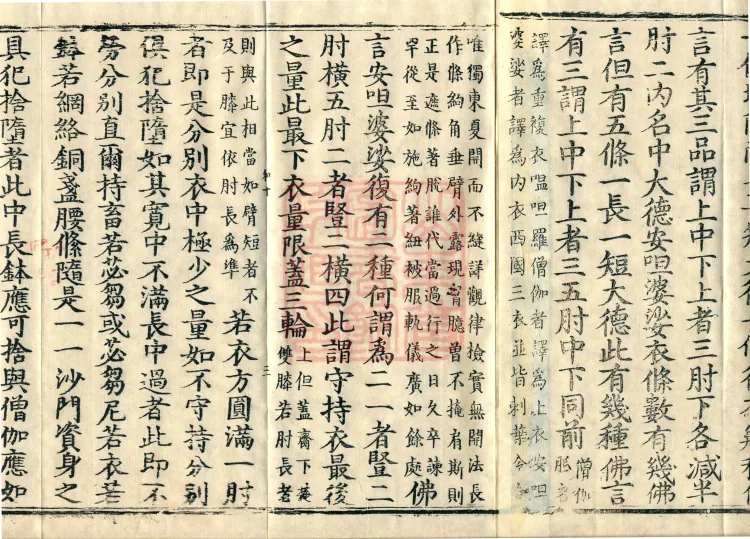 言有其三品謂上中下上者三肘下各減半
肘二內名中大德安呾婆娑衣條數有幾佛
言但有五條一長一短大德此有幾種佛言
有三謂上中下上者三五肘中下同前
僧伽
胝者
譯為重複衣嗢呾羅僧伽者譯為上衣安呾
婆娑者譯為內衣西國三衣並皆刺葉令合
唯獨東夏開而不縫詳觀律檢實無開法長
作條絇角垂臂外露現胷臆曾不掩肩斯則
正是遮條著脫誰代當過行之日久卒諫
罕從至如施絇著紐被服軌儀廣如餘處
佛
言安呾婆娑復有二種何謂為二一者豎二
肘橫五肘二者豎二橫四此謂守持衣最後
之量此最下衣量限蓋三輪
上但蓋齋下掩
雙膝若肘長者
則與此相當如臂短者不
及于膝宜依肘長為準
若衣方圓滿一肘
者即是分別衣中極少之量如不守持分別
俱犯捨墮如其寬中不滿長中過者此即不
勞分別直爾持畜若苾芻或苾芻尼若衣若
鉢若網絡銅盞腰絛隨是一一沙門資身之
具犯捨墮者此中長鉢應可捨與僧伽應如